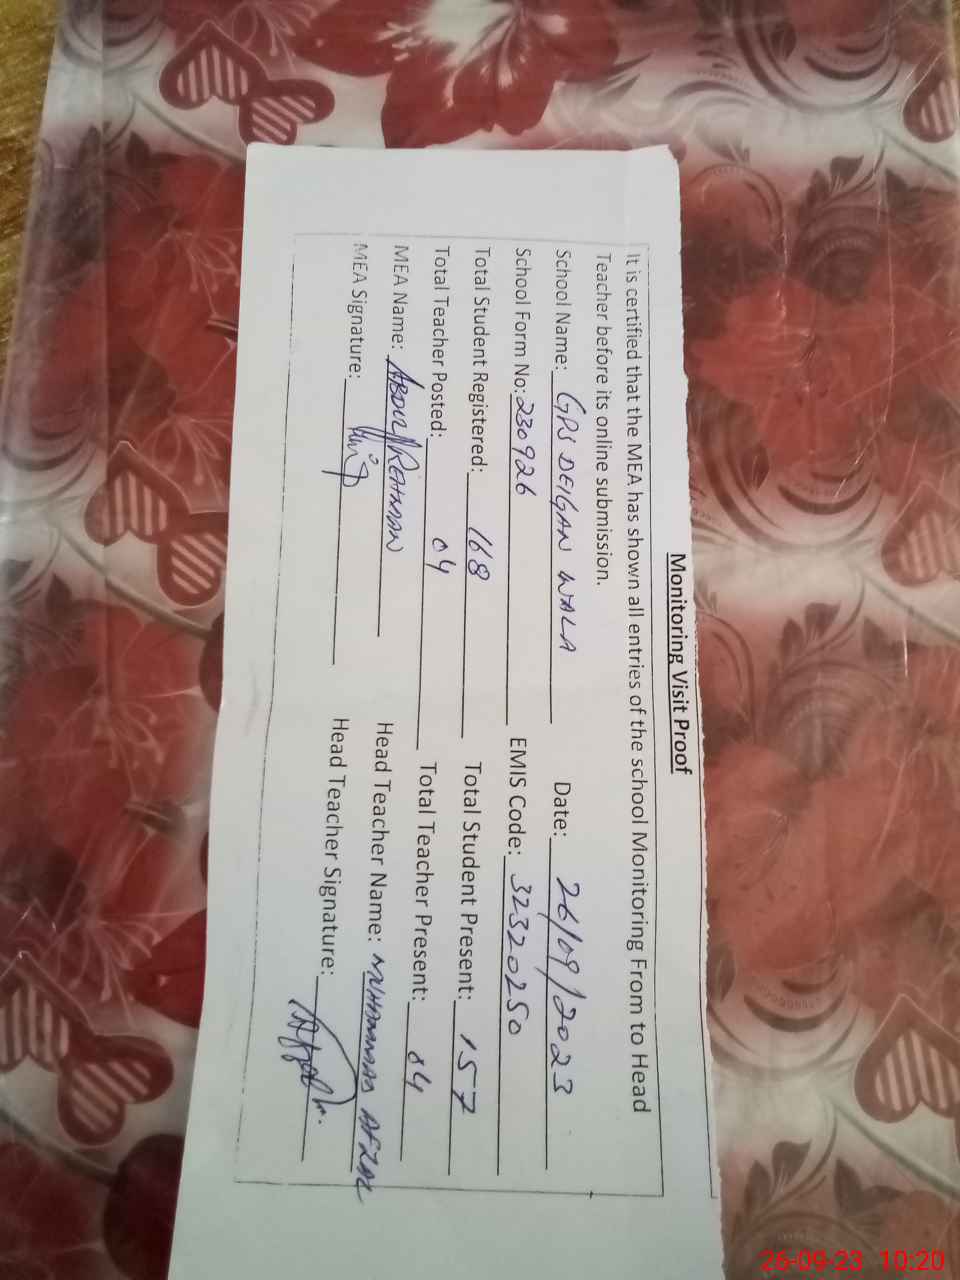 Monitoring Visit Proof
It is certified that the MEA has shown all entries of the school Monitoring From to Head
Teacher before its online submission.
School Name: GPS DEIGAN WALA Date: 26/09/2023
School Form No: 230926 EMIS Code: 32320250
Total Student Registered: 168 Total Student Present: 157
Total Teacher Posted: 04 Total Teacher Present: 04
MEA Name: ABDUL REHMAN Head Teacher Name: MUHAMMAD AFZAL
MEA Signature: Head Teacher Signature:
26-09-23 10:20